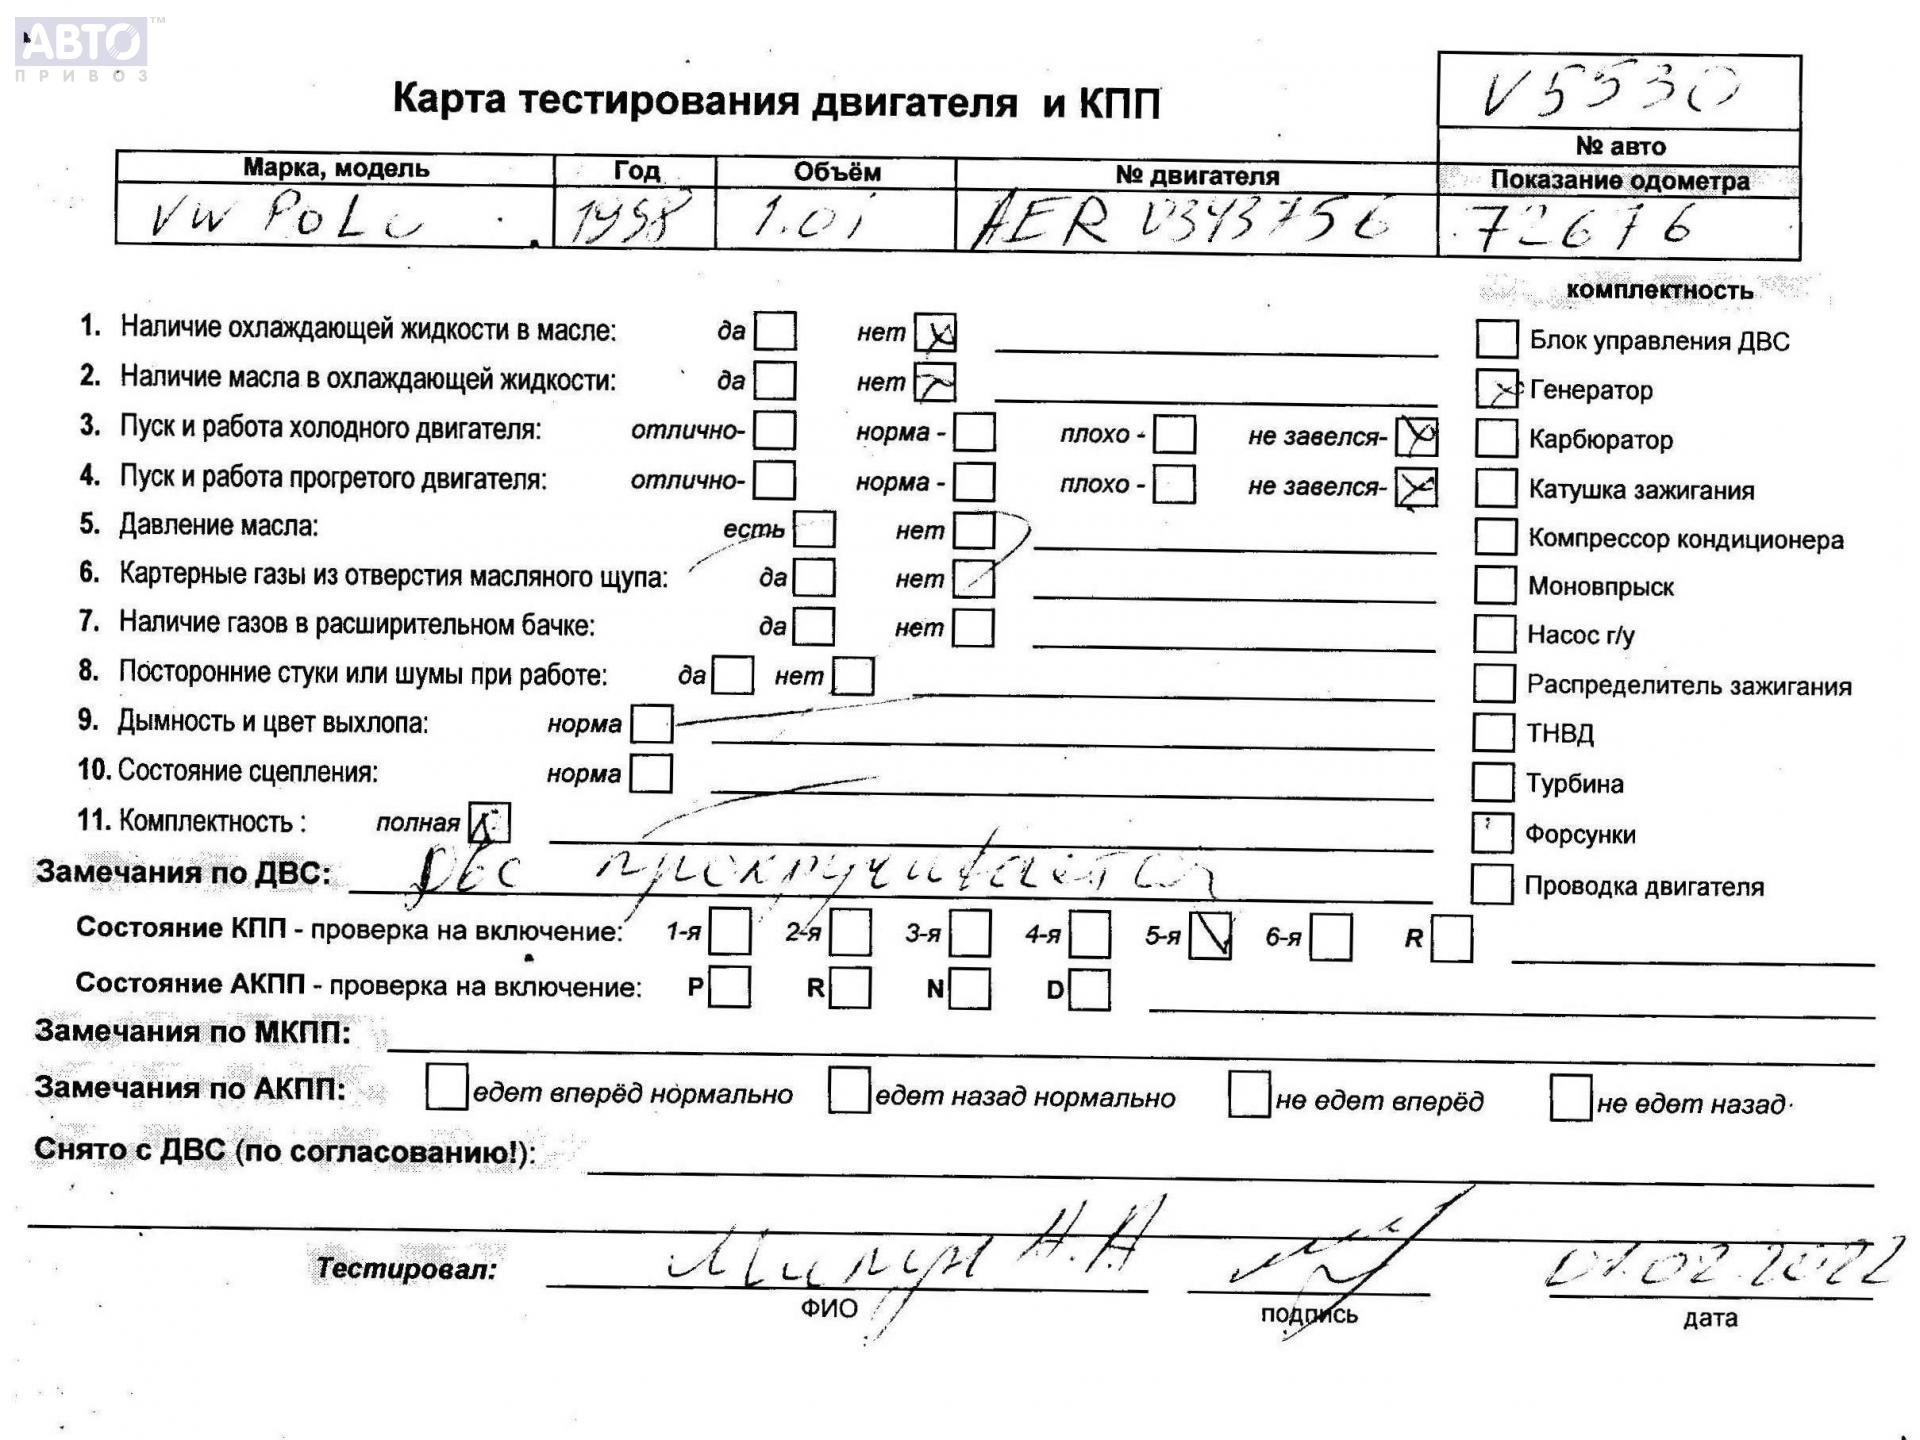 АВТО™
ПРИВОЗ
Карта тестирования двигателя и КПП
V5530
№ авто
Марка, модель Год Объём № двигателя Показание одометра
VW POLO 1998 1.0i AER 0343756 72676
комплектность
1. Наличие охлаждающей жидкости в масле: да нет
Блок управления ДВС
2. Наличие масла в охлаждающей жидкости: да нет
Генератор
3. Пуск и работа холодного двигателя: отлично- норма - плохо - не завелся-
Карбюратор
4. Пуск и работа прогретого двигателя: отлично- норма - плохо - не завелся-
Катушка зажигания
5. Давление масла: есть нет
Компрессор кондиционера
6. Картерные газы из отверстия масляного щупа: да нет
Моновпрыск
7. Наличие газов в расширительном бачке: да нет
Насос г/у
8. Посторонние стуки или шумы при работе: да нет
Распределитель зажигания
9. Дымность и цвет выхлопа: норма
ТНВД
10. Состояние сцепления: норма
Турбина
11. Комплектность : полная
Форсунки
Замечания по ДВС: Двс прокручивается
Проводка двигателя
Состояние КПП - проверка на включение: 1-я 2-я 3-я 4-я 5-я 6-я R
Состояние АКПП - проверка на включение: P R N D
Замечания по МКПП:
Замечания по АКПП: едет вперёд нормально едет назад нормально не едет вперёд не едет назад
Снято с ДВС (по согласованию!):
Тестировал: А.А 01.02.2022
ФИО подпись дата